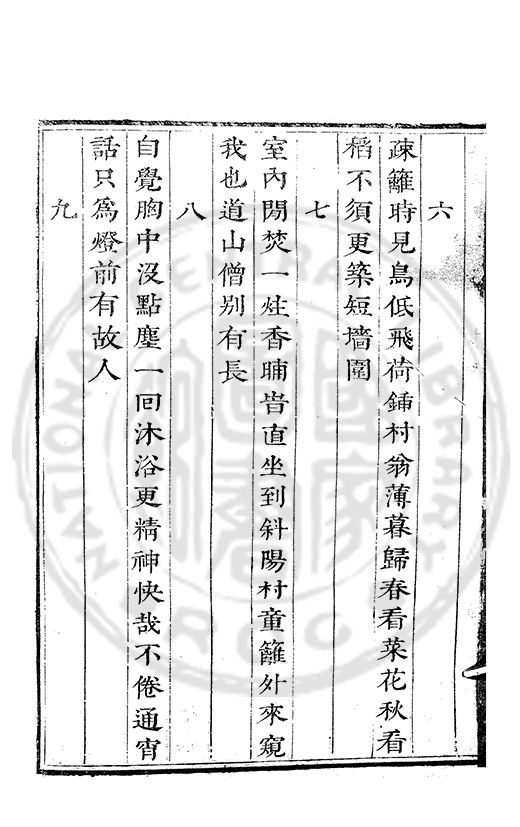 六
疎籬時見鳥低飛荷鍤村翁薄暮歸春看菜花秋看
稻不須更築短墻圍
七
室內閒焚一炷香晡旹直坐到斜陽村童籬外來窺
我也道山僧別有長
八
自覺胸中沒點塵一回沐浴更精神快哉不倦通宵
話只爲燈前有故人
九
NATIONAL CENTRAL LIBRARY